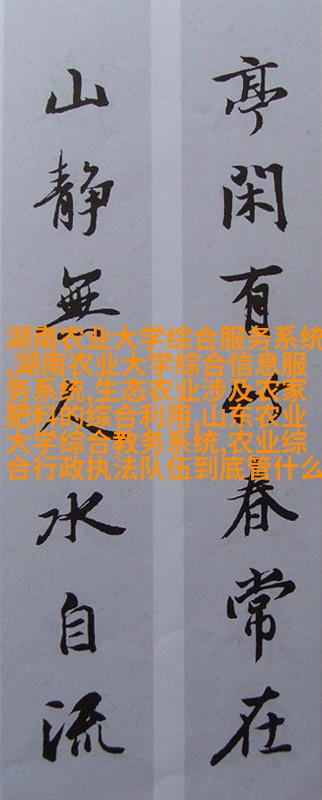 亭閑有春常在
山靜無人水自流
湖南农业大学综合服务系统
,湖南农业大学综合信息服
务系统,生态农业涉及农家
肥料的综合利用,山东农业
大学综合教务系统,农业综
合行政执法队伍到底管什么